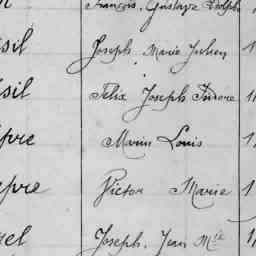 François, Gustave Adolphe
sil Joseph, Marie Julien 1
sil Félix Joseph Isidore 1
pre Marin Louis 1
epre Victor Marie 1
el Joseph, Jean Mie 1